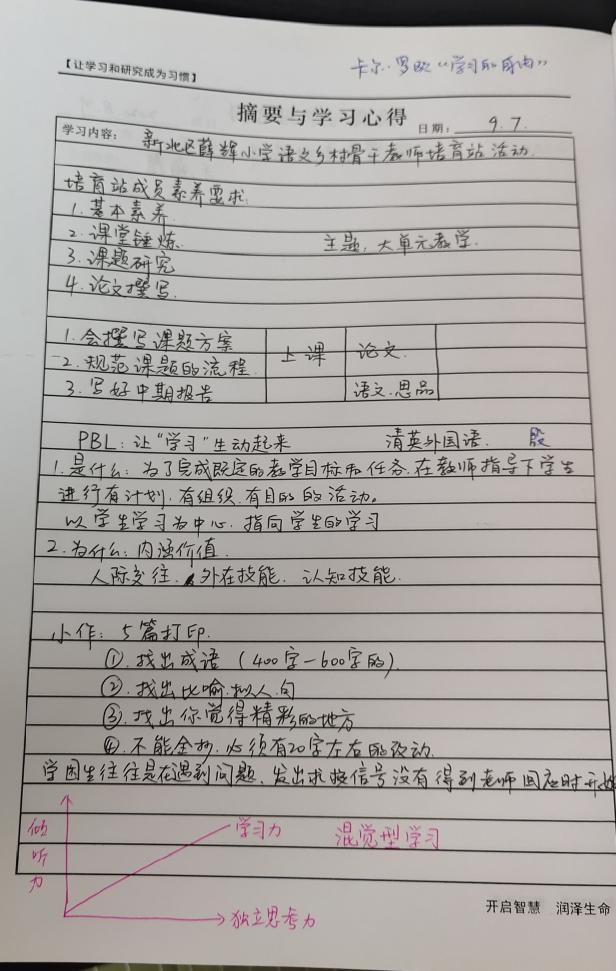 【让学习和研究成为习惯】
卡尔·罗杰“学习的自由”
摘要与学习心得
学习内容：
日期：9.7.
新北区薛辉小学语文乡村骨干教师培育站活动.
培育站成员素养要求.
1.基本素养.
2.课堂锤炼. 主题:大单元教学.
3.课题研究
4.论文撰写.
1.会撰写课题方案 上课 论文.
2.规范课题的流程.
3.写好中期报告 语文.思品
PBL:让“学习”生动起来 清英外国语. 殷
1.是什么:为了完成既定的教学目标和任务.在教师指导下学生
进行有计划.有组织.有目的的活动。
以学生学习为中心.指向学生的学习
2.为什么:内涵价值.
人际交往. 外在技能. 认知技能.
小作: 5篇打印.
①.找出成语(400字-600字的)
②.找出比喻.拟人句
③.找出你觉得精彩的地方
④.不能全抄.必须有20字左右的改动.
学困生往往是在遇到问题.发出求救信号没有得到老师回应时开始
倾听力
学习力 混觉型学习
独立思考力
开启智慧 润泽生命